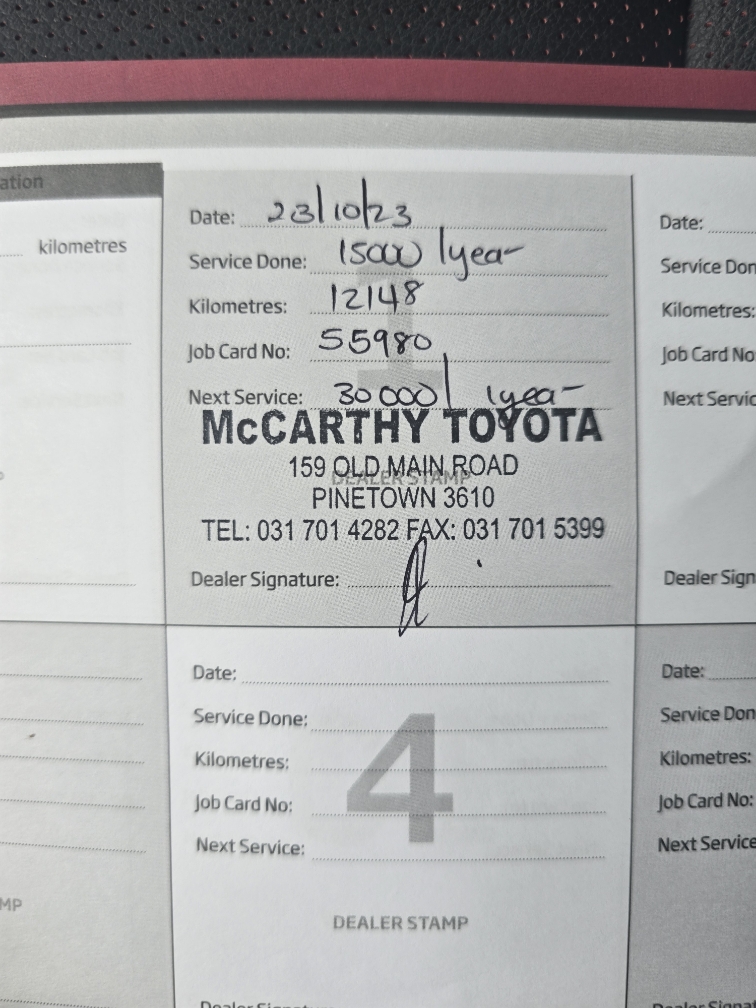 ation
kilometres
Date: 23/10/23
Service Done: 15000 / year
Kilometres: 12148
Job Card No: 55980
Next Service: 30 000 / 1year
1
McCARTHY TOYOTA
159 OLD MAIN ROAD
DEALER STAMP
PINETOWN 3610
TEL: 031 701 4282 FAX: 031 701 5399
Dealer Signature:
Date:
Service Don
Kilometres:
Job Card No
Next Servic
Dealer Sign
MP
Date:
Service Done:
Kilometres:
Job Card No:
Next Service:
4
DEALER STAMP
Dealer Signature
Date:
Service Don
Kilometres:
Job Card No:
Next Service
Dealer Signa